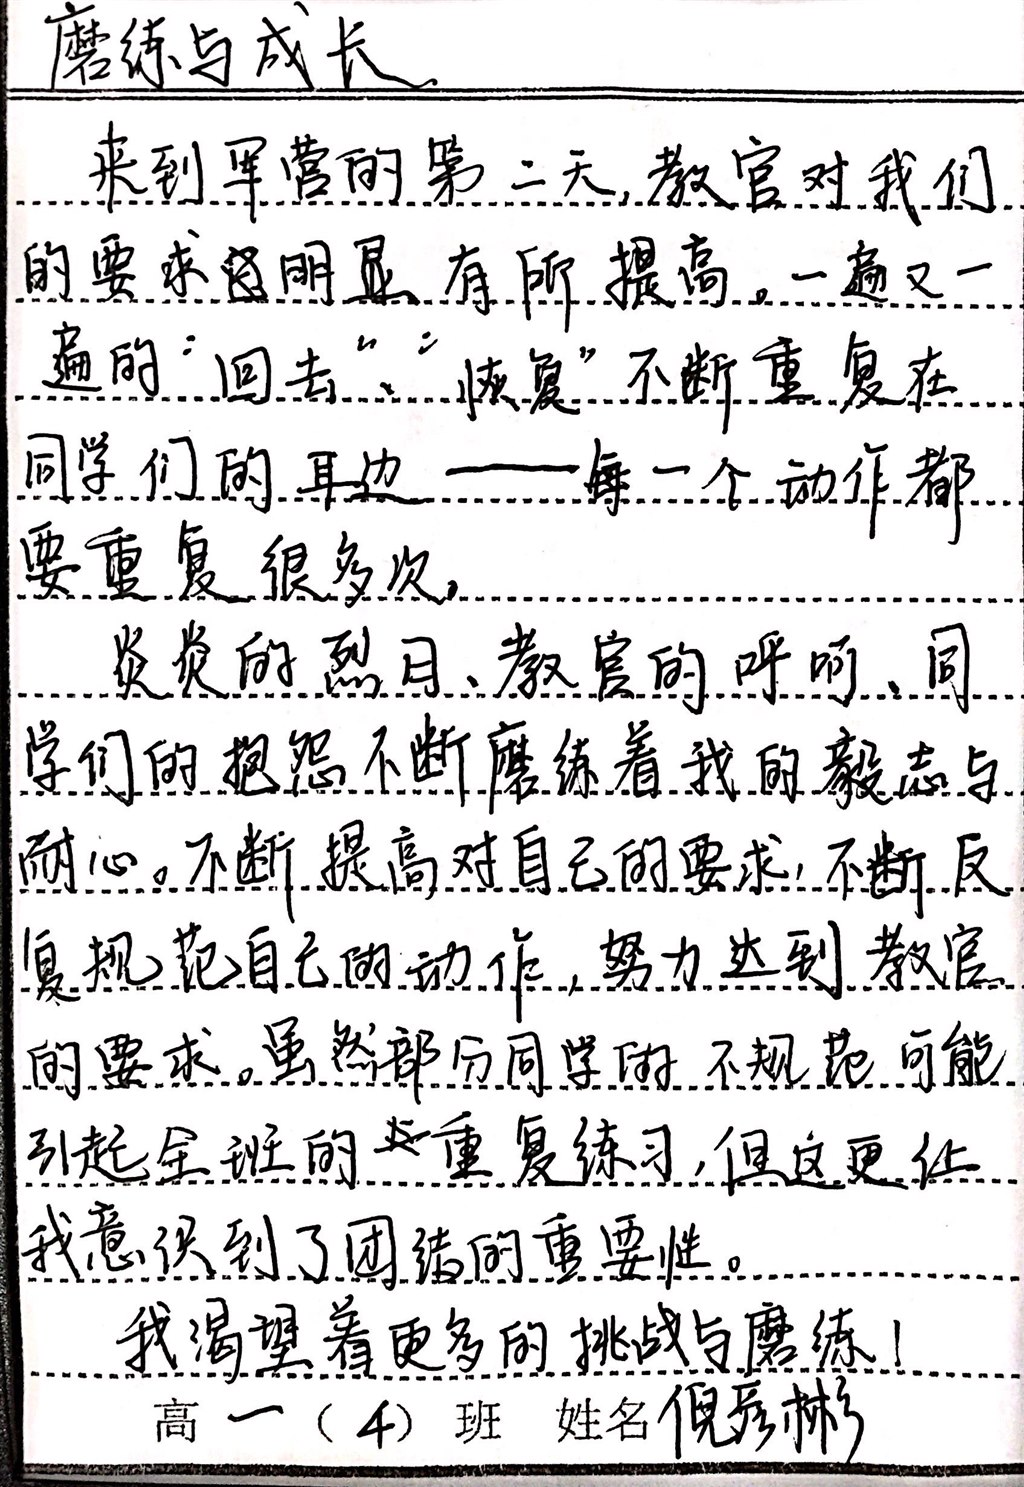 磨练与成长
来到军营的第二天,教官对我们
的要求明显有所提高。一遍又一
遍的“回去”、“恢复”不断重复在
同学们的耳边——每一个动作都
要重复很多次。
炎炎的烈日、教官的呼啊、同
学们的抱怨不断磨练着我的毅志与
耐心。不断提高对自己的要求,不断反
复规范自己的动作,努力达到教官
的要求。虽然部分同学的不规范可能
引起全班的重复练习,但这更让
我意识到了团结的重要性。
我渴望着更多的挑战与磨练!
高一(4)班 姓名倪彦彬